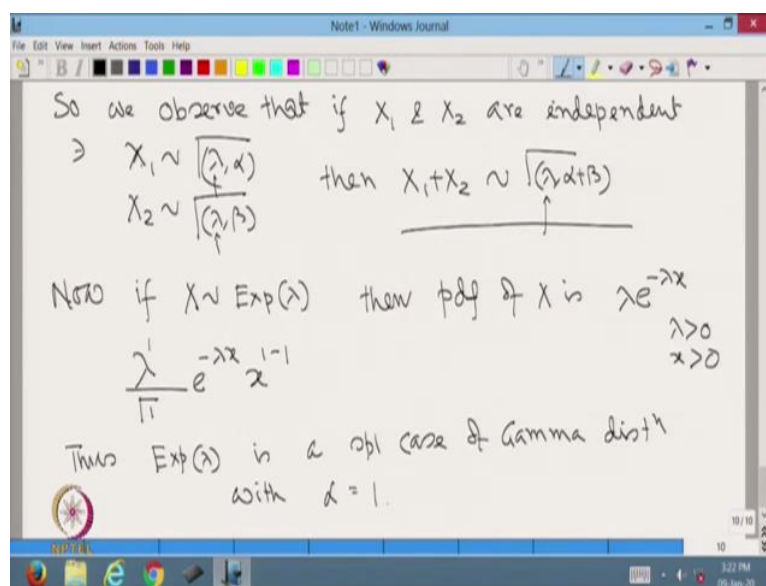 Note1 - Windows Journal
File Edit View Insert Actions Tools Help
So we observe that if X₁ & X₂ are independent
∋ X₁ ~ Γ(λ, α) then X₁+X₂ ~ Γ(λ, α+β)
X₂ ~ Γ(λ, β)
Now if X ~ Exp(λ) then pdf of X is λe^{-λx}
λ>0
x>0
λ^1/Γ1 e^{-λx} x^{1-1}
Thus Exp(λ) is a spl case of Gamma distⁿ
with α = 1.
10/10
NPTEL
10
3:22 PM